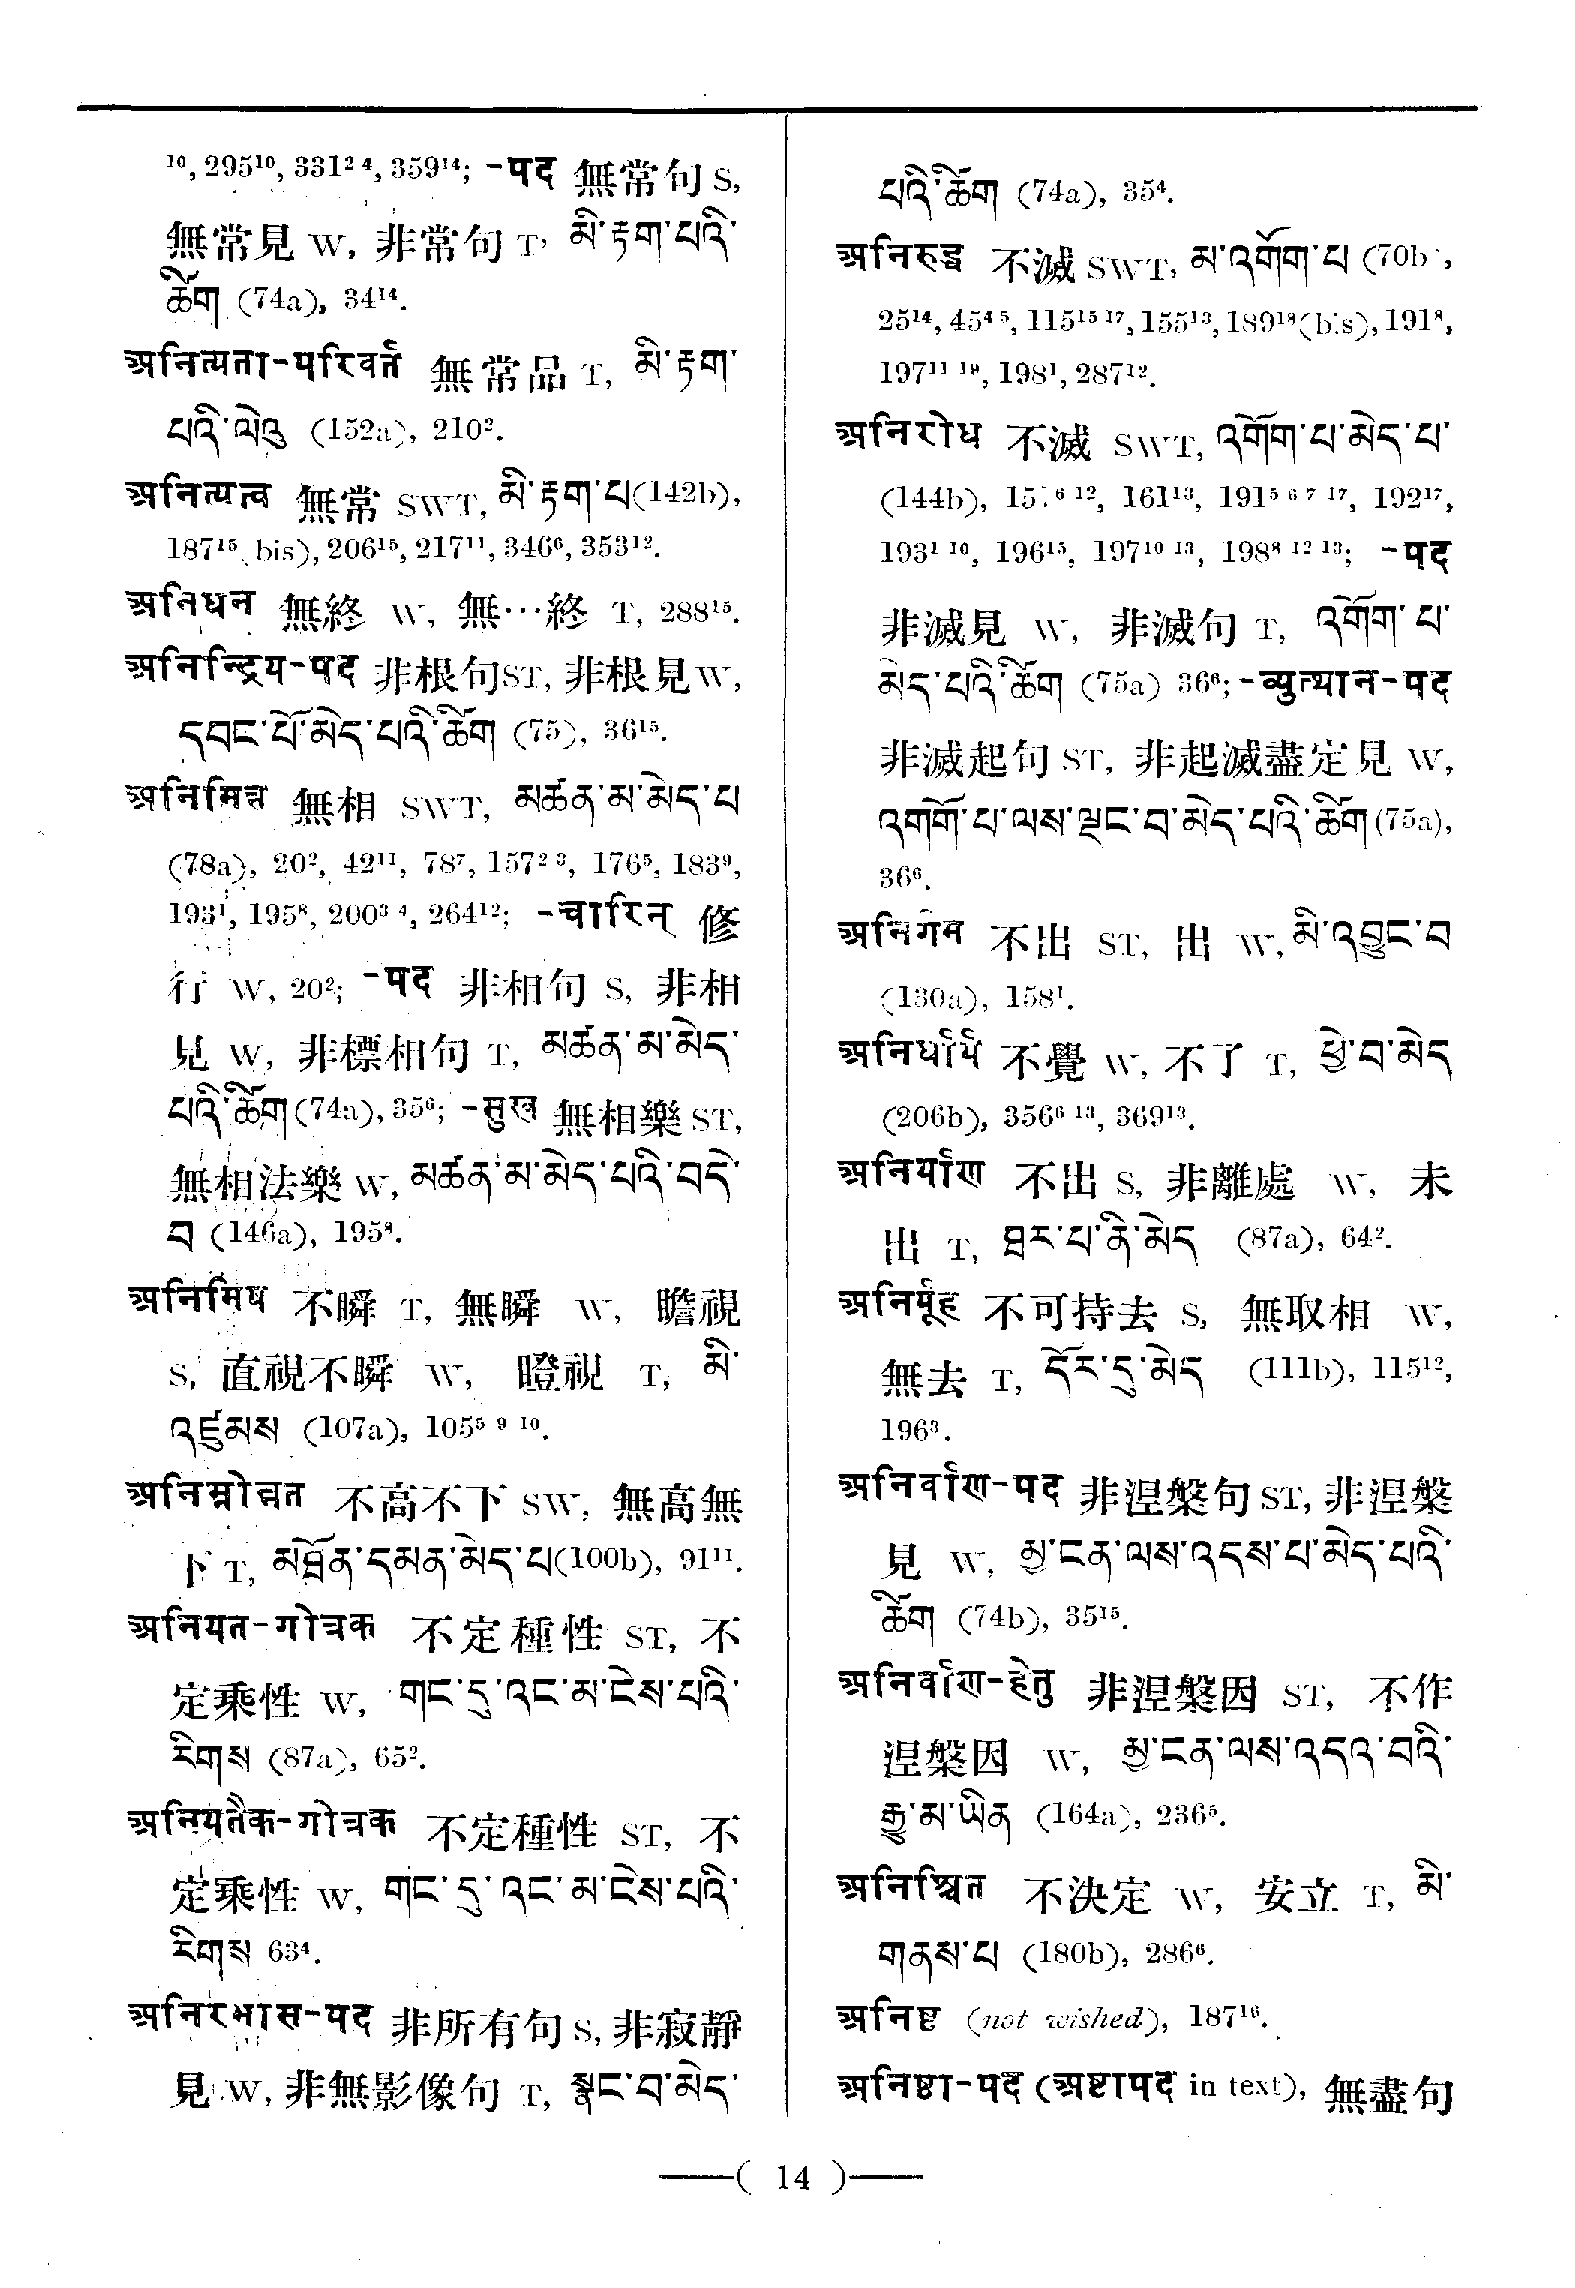 ¹⁰, 295¹⁰, 331² ⁴, 359¹⁴; -पद 無常句 S,
無常見 W, 非常句 T, མི་རྟག་པའི་
ཚིག (74a), 34¹⁴.
अनित्यता-परिवर्त 無常品 T, མི་རྟག་
པའི་ལེའུ (152a), 210².
अनित्यत्व 無常 SWT, མི་རྟག་པ(142b),
187¹⁵ bis), 206¹⁵, 217¹¹, 346⁶, 353¹².
अनिधन 無終 W, 無⋯終 T, 288¹⁵.
अनिन्द्रिय-पद 非根句ST, 非根見W,
དབང་པོ་མེད་པའི་ཚིག (75), 36¹⁵.
अनिमित्त 無相 SWT, མཚན་མ་མེད་པ
(78a), 20², 42¹¹, 78⁷, 157² ³, 176⁵, 183⁹,
193¹, 195⁸, 200³ ⁴, 264¹²; -चारिन् 修
行 W, 20²; -पद 非相句 S, 非相
見 W, 非標相句 T, མཚན་མ་མེད་
པའི་ཚིག(74a), 35⁶; -सुख 無相樂ST,
無相法樂 W, མཚན་མ་མེད་པའི་བདེ་
བ (146a), 195⁸.
अनिमिष 不瞬 T, 無瞬 W, 瞻視
S, 直視不瞬 W, 瞪視 T, མི་
འཛུམས (107a), 105⁵ ⁹ ¹⁰.
अनिम्नोन्नत 不高不下 SW, 無高無
下 T, མཐོན་དམན་མེད་པ(100b), 91¹¹.
अनियत-गोत्रक 不定種性 ST, 不
定乘性 W, གང་དུ་འང་མ་ངེས་པའི་
རིགས (87a), 65².
अनियतैक-गोत्रक 不定種性 ST, 不
定乘性 W, གང་དུ་འང་མ་ངེས་པའི་
རིགས 63⁴.
अनिरभास-पद 非所有句 S, 非寂靜
見 W, 非無影像句 T, སྣང་བ་མེད་
པའི་ཚིག (74a), 35⁴.
अनिरुद्ध 不滅 SWT, མ་འགོག་པ (70b,
25¹⁴, 45⁴ ⁵, 115¹⁵ ¹⁷, 155¹³, 189¹⁸(bis), 191⁸,
197¹¹ ¹⁹, 198¹, 287¹².
अनिरोध 不滅 SWT, འགོག་པ་མེད་པ་
(144b), ⁶ ¹², 161¹³, 191⁵ ⁶ ⁷ ¹⁷, 192¹⁷,
193¹ ¹⁰, 196¹⁵, 197¹⁰ ¹³, 198⁸ ¹² ¹³; -पद
非滅見 W, 非滅句 T, འགོག་པ་
མེད་པའི་ཚིག (75a) 36⁶; -व्युत्थान-पद
非滅起句 ST, 非起滅盡定見 W,
འགགོ་པ་ལས་ལྡང་བ་མེད་པའི་ཚིག(75a),
36⁶.
अनिर्गम 不出 ST, 出 W, མི་འབྱུང་བ
(130a), 158¹.
अनिर्धार्य 不覺 W, 不了 T, ཕྱེ་བ་མེད
(206b), 356⁶ ¹³, 369¹³.
अनिर्याण 不出 S, 非離處 W, 未
出 T, ཐར་པ་ནི་མེད (87a), 64².
अनिर्यूह 不可持去 S, 無取相 W,
無去 T, དོར་དུ་མེད (111b), 115¹²,
196³.
अनिर्वाण-पद 非涅槃句 ST, 非涅槃
見 W, མྱ་ངན་ལས་འདས་པ་མེད་པའི་
ཚིག (74b), 35¹⁵.
अनिर्वाण-हेतु 非涅槃因 ST, 不作
涅槃因 W, མྱ་ངན་ལས་འདའ་བའི་
རྒྱུ་མ་ཡིན (164a), 236⁵.
अनिश्चित 不決定 W, 安立 T, མི་
གནས་པ (180b), 286⁶.
अनिष्ट (not wished), 187¹⁶.
अनिष्ठा-पद (अष्टापद in text), 無盡句
—( 14 )—